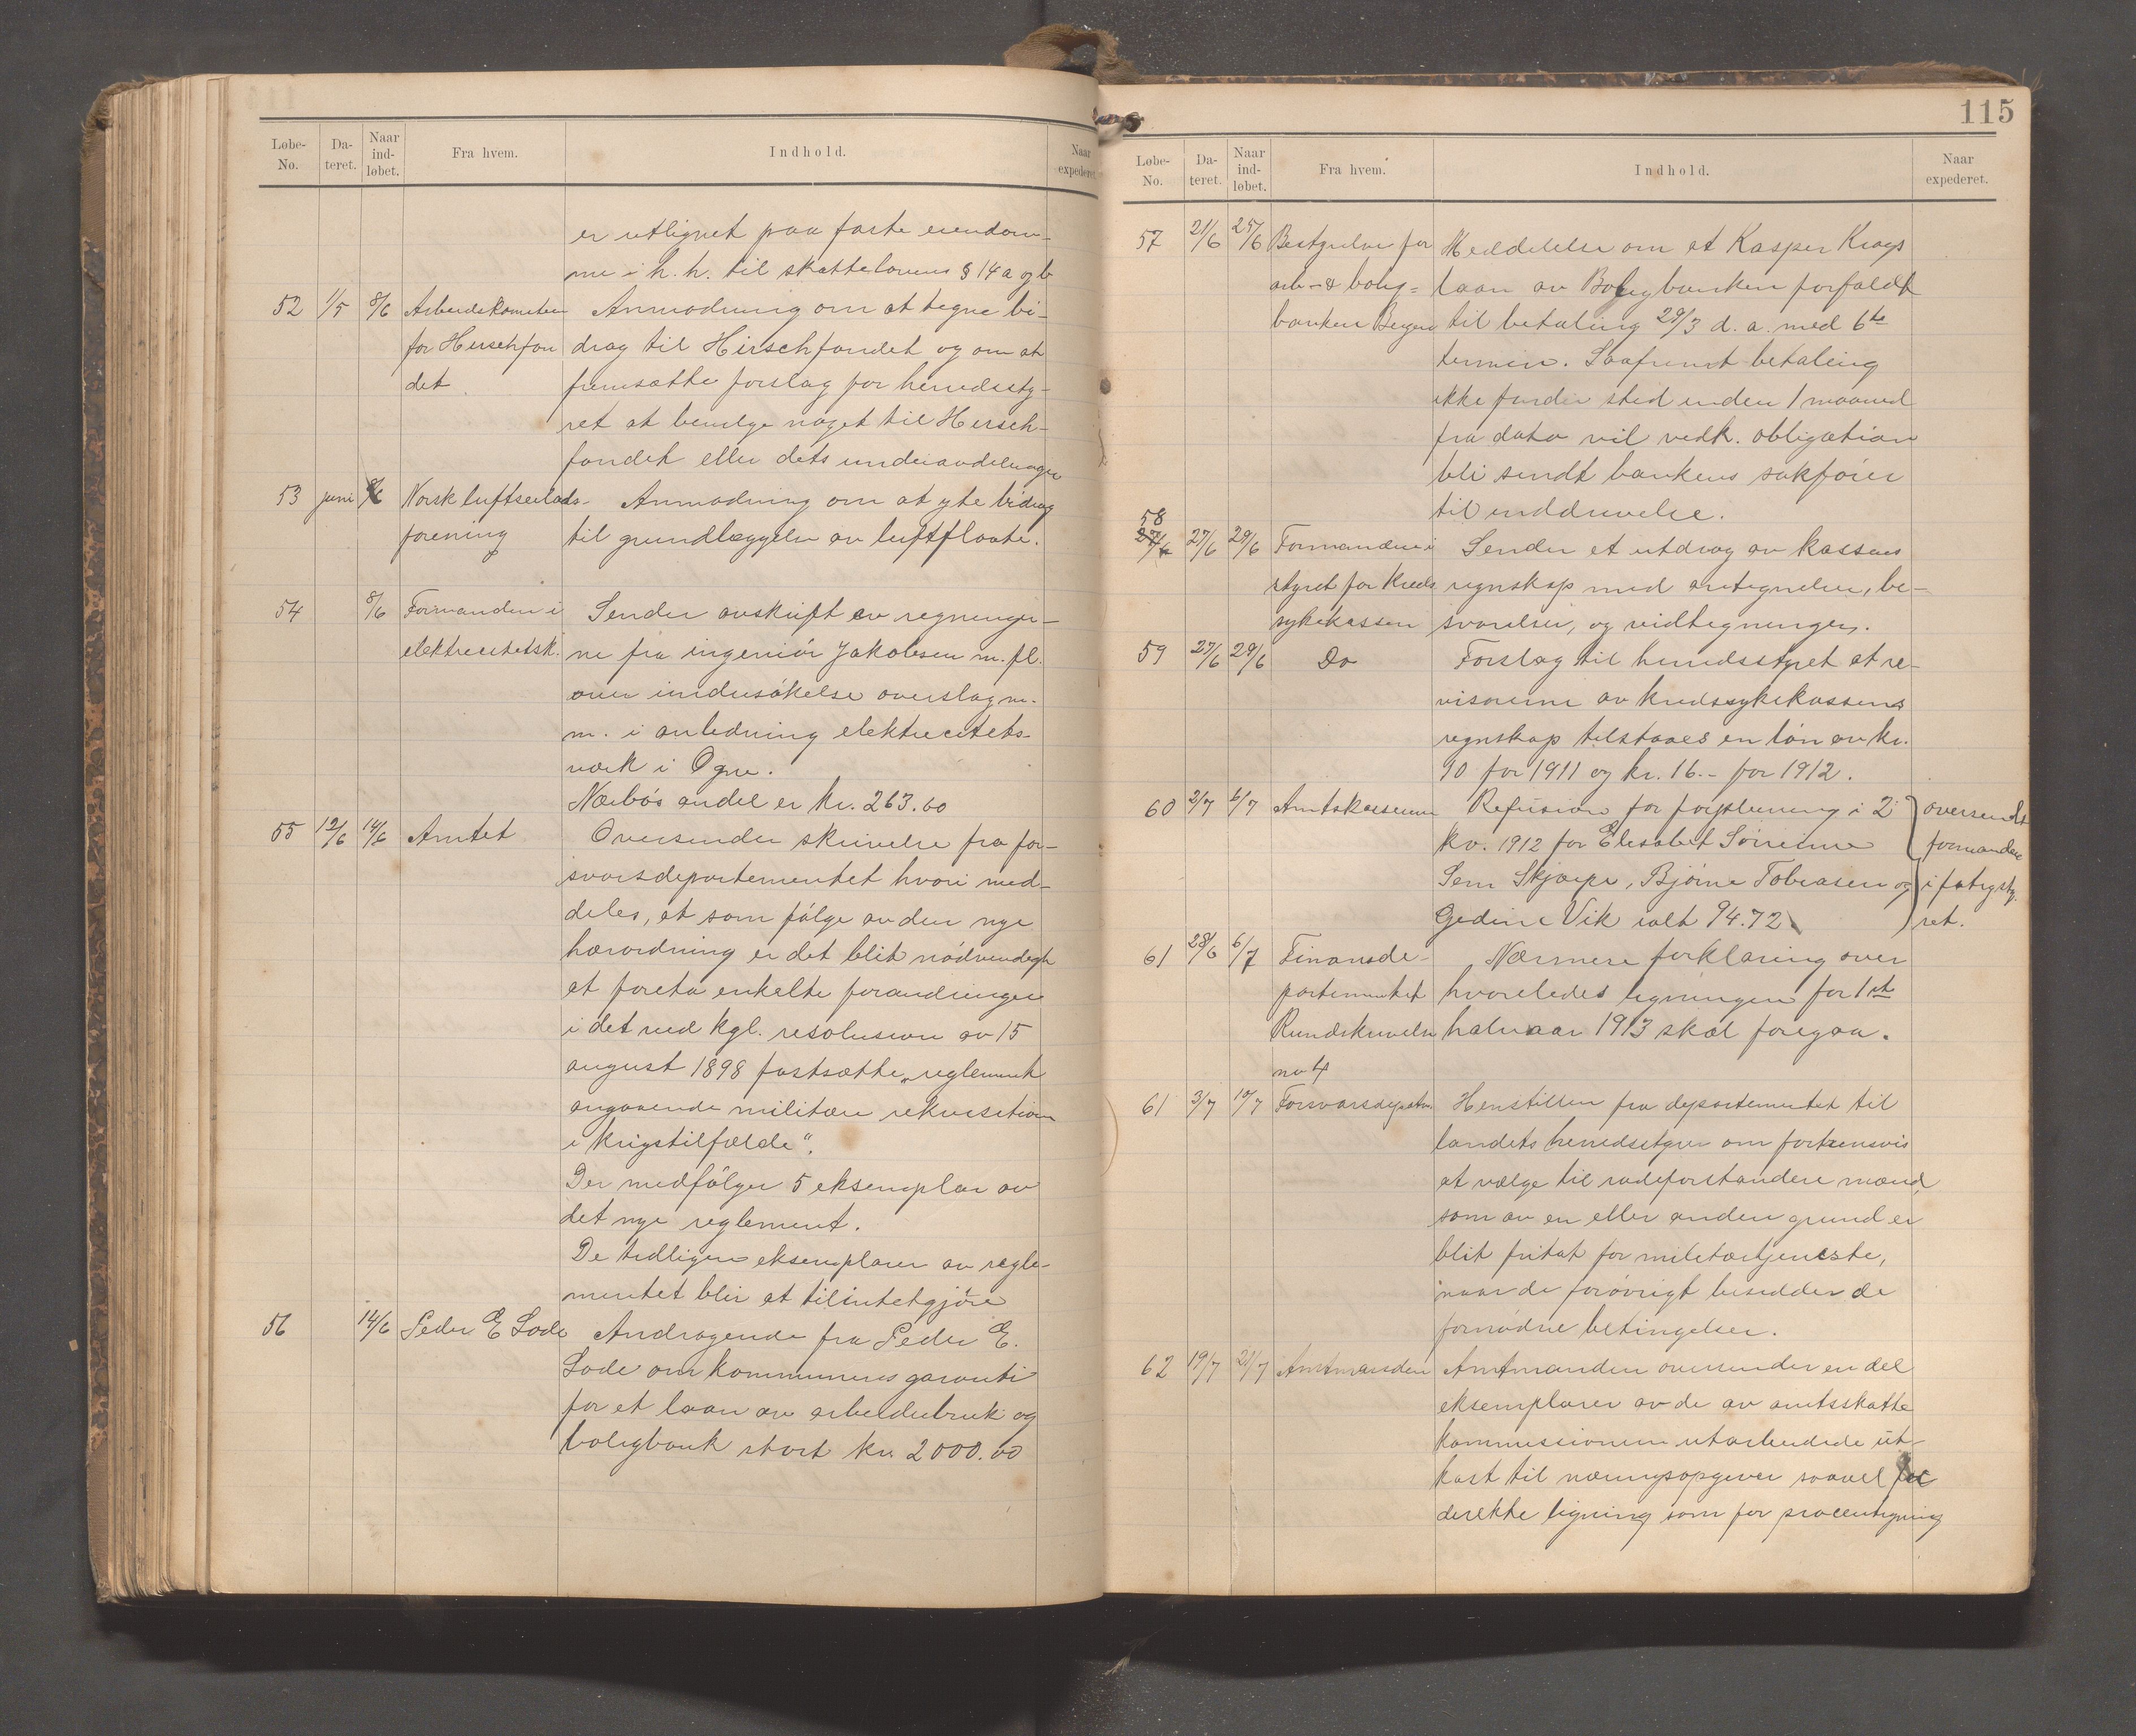 Løbe-No. Da-teret. Naar ind-løbet. Fra hvem. Indhold. Naar expederet
er utlignet paa faste eiendom-
me i h. h. til skattelovens § 14 a og b
52 1/5 8/6 Arbeidskomiteen Anmodning om at tegne bi-
for Hirschfon drag til Hirschfondet og om at
det fremsætte forslag for herredssty-
ret at bevilge noget til Hirsch-
fondet eller dets underavdelinger
53 juni 8/6 Norsk luftseilads- Anmodning om at yte bidrag
forening til grundlæggelse av luftflaate.
54 8/6 Formanden i Sender avskrift av regninger-
elektricitetsk. ne fra ingeniör Jakobsen m. fl.
over undersökelse overslag m.
m. i anledning elektricitets-
værk i Ogne.
Nærbös andel er kr. 263.60
55 12/6 14/6 Amtet Oversender skrivelse fra for-
svarsdepartementet hvori med-
deles, at som fölge av den nye
hærordning er det blit nödvendigt
at foreta enkelte forandringer
i det ved kgl. resolusion av 15
august 1898 fastsatte „reglement
angaaende militære rekvisitioner
i krigstilfælde“.
Der medfölger 5 eksemplar av
det nye reglement.
De tidligere eksemplarer av regle-
mentet blir at tilintetgjöre
56 14/6 Peder E Lode Andragende fra Peder E.
Lode om kommunens garanti
for et laan av arbeiderbruk og
boligbank stort kr. 2000.00
115
Løbe-No. Da-teret. Naar ind-løbet. Fra hvem. Indhold. Naar expederet.
57 21/6 25/6 Bestyrelse for Meddelelse om at Kasper Krags
arb- & bolig= laan av Boligbanken forfaldt
banken Bergen til betaling 29/3 d. a. med 6te
termin. Saafremt betaling
ikke finder sted inden 1 maaned
fra dato vil vedk. obligation
bli sendt bankens sakförer
til inddrivelse.
58
27/6 27/6 29/6 Formanden i Sender et utdrag av kassens
styret for kreds regnskap med antegnelser, be-
sykekassen svarelser, og vidtegninger.
59 27/6 29/6 Do Forslag til herredsstyret at re-
visorerne av kredssykekassens
regnskap tilstaaes en lön av kr.
90 for 1911 og kr. 16.- for 1912.
60 2/7 6/7 Amtskasseren Refusion for forpleining i 2' oversendt
kv. 1912 for Elisabet Sörine formanden
Sem Skjærpe, Bjórne Tobiasen og i fatigsty
Gedine Vik ialt 94.72 ret.
61 28/6 6/7 Finansde- Nærmere forklaring over
partementet hvorledes ligningen for 1ste
Rundskrivelse halvaar 1913 skal foregaa.
no 4
61 3/7 10/7 Forsvarsdepartem. Henstillen fra departementet til
landets herredsstyrer om fortrinsvis
at vælge til rodeforstandere mænd,
som av en eller anden grund er
blit fritat for militærtjeneste,
naar de forövrigt besidder de
fornødne betingelser.
62 19/7 21/7 Amtmanden Amtmanden oversender en del
eksemplarer av de av amtsskatte
kommissionen utarbeidede ut-
kast til næringsopgaver saavel for
direkte ligning som for procentligning